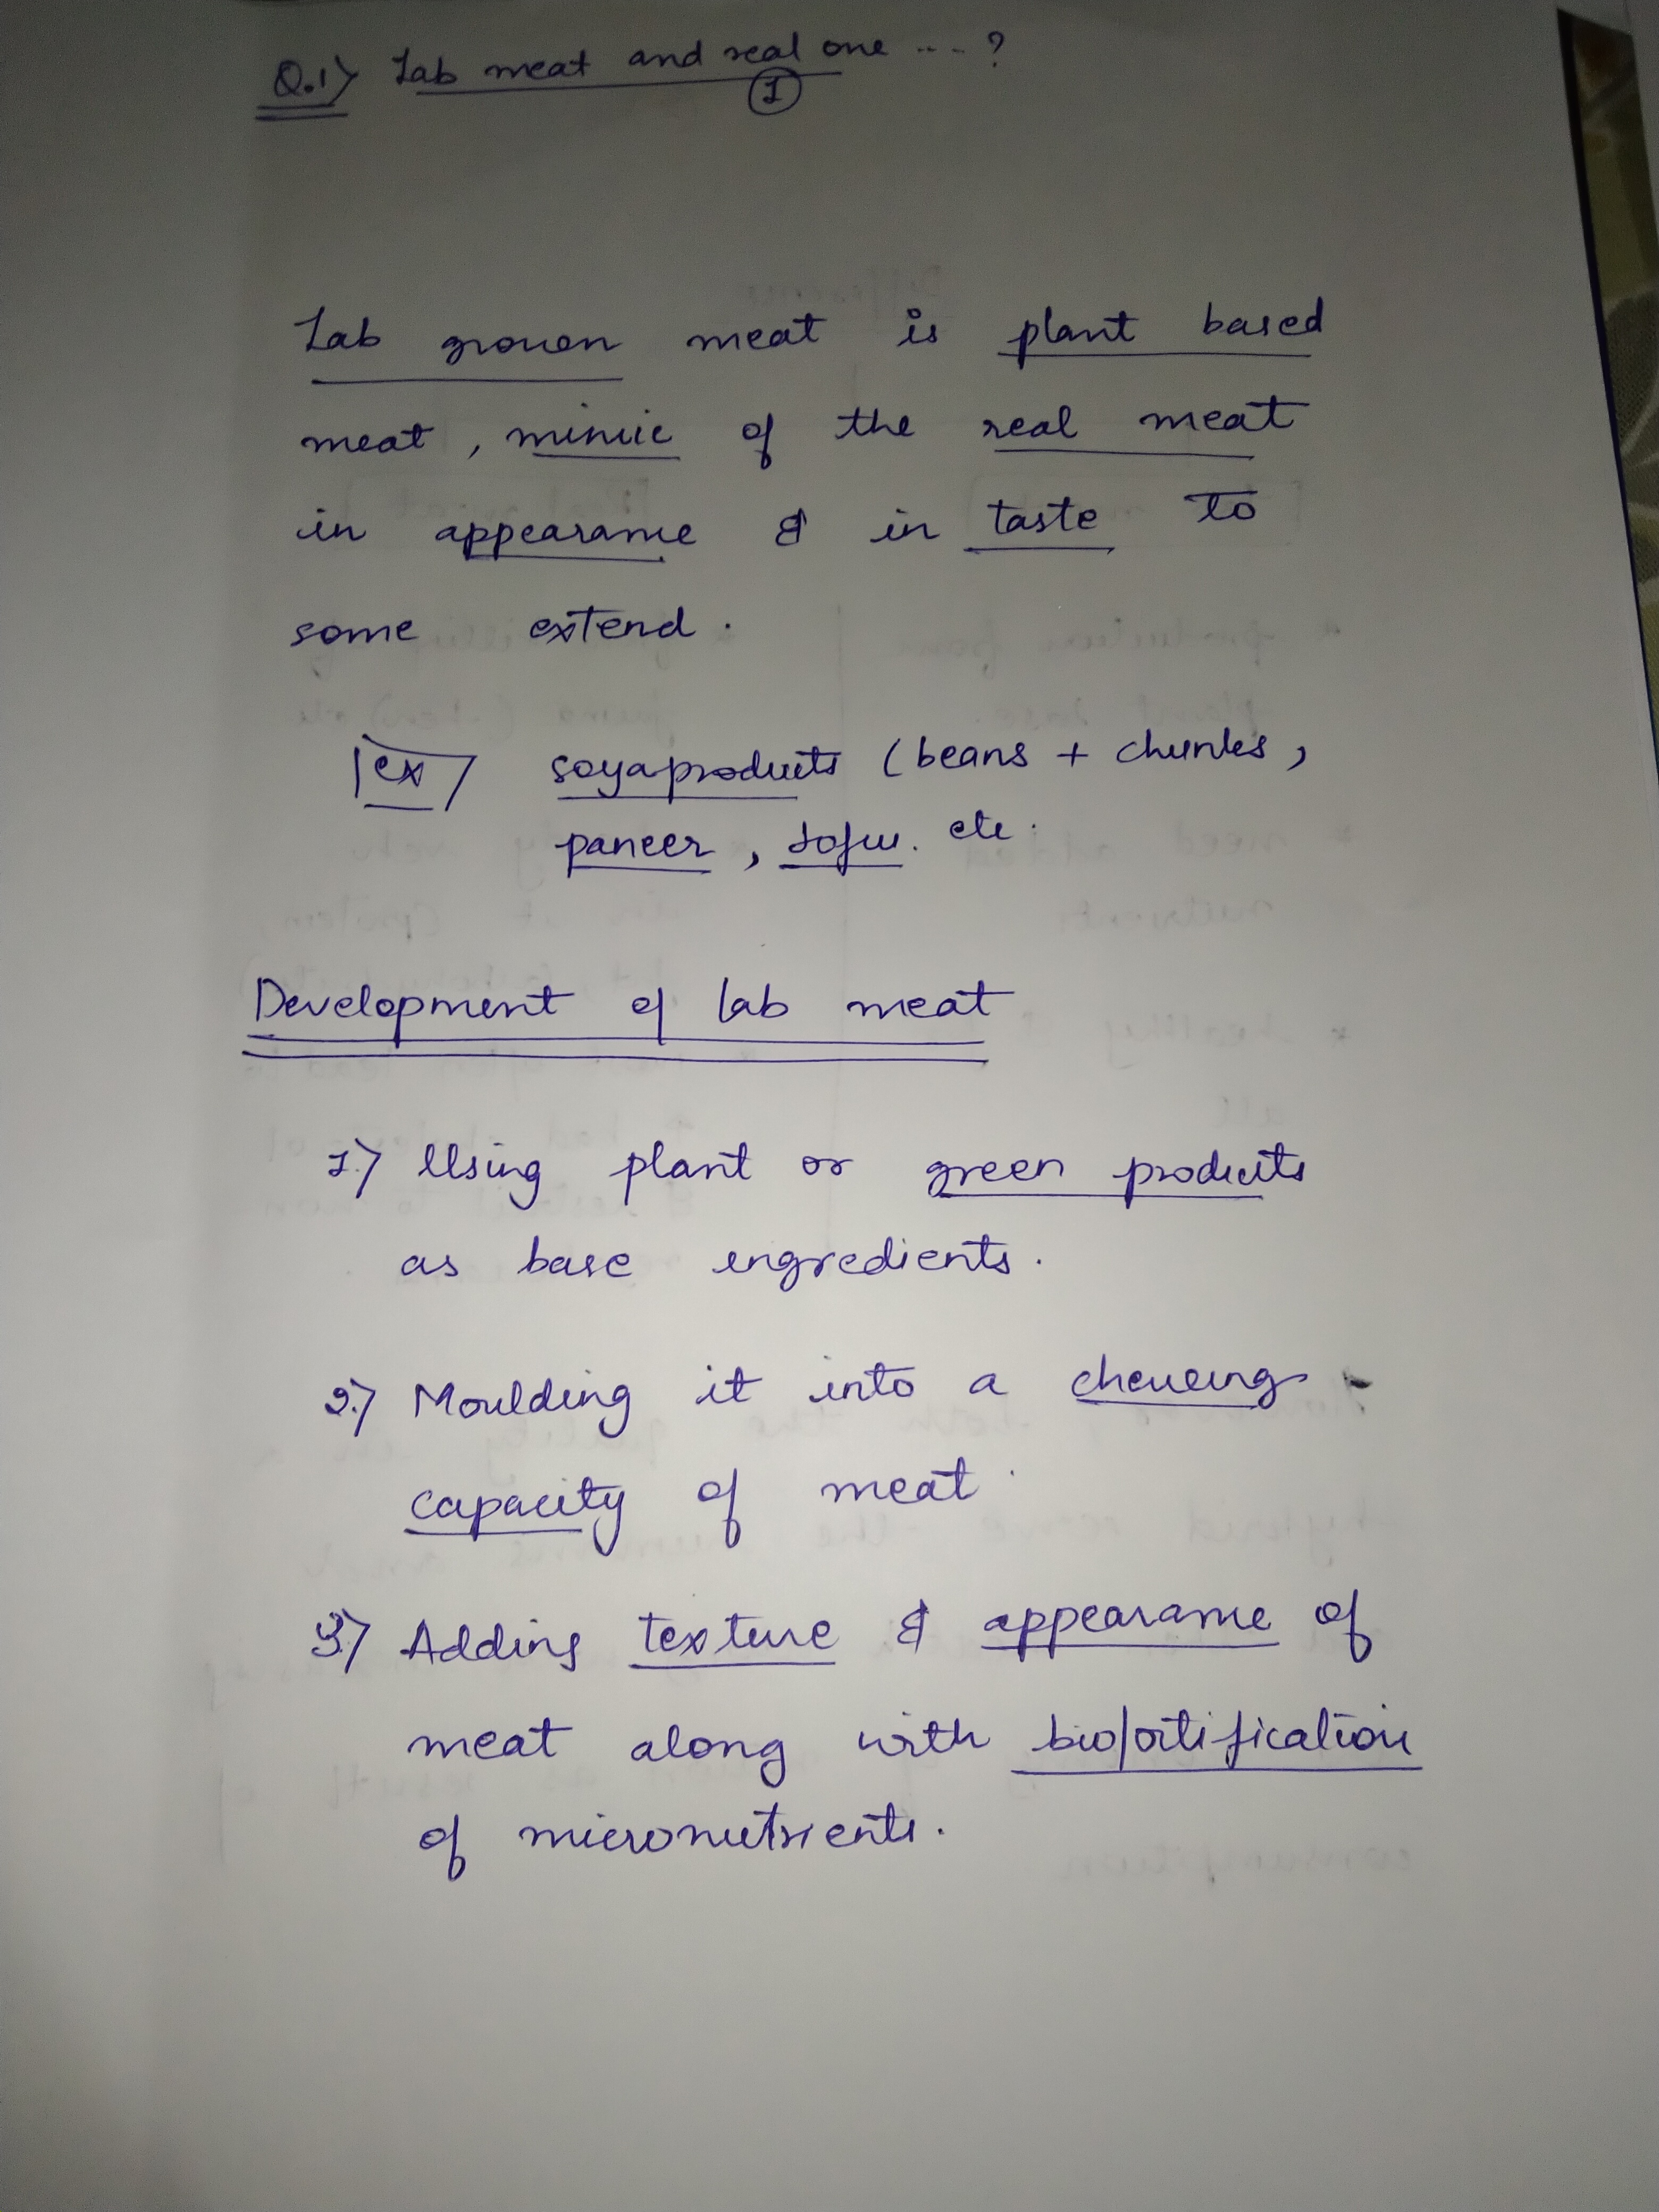 Q.1) Lab meat and real one ... ?
1
Lab grown meat is plant based
meat, mimic of the real meat
in appearance & in taste to
some extend.
ex soyaproducts (beans + chunks,
paneer, tofu. etc.
Development of lab meat
1.) Using plant or green products
as base ingredients.
2.) Moulding it into a chewing
capacity of meat.
3.) Adding texture & appearance of
meat along with biofortification
of micronutrients.